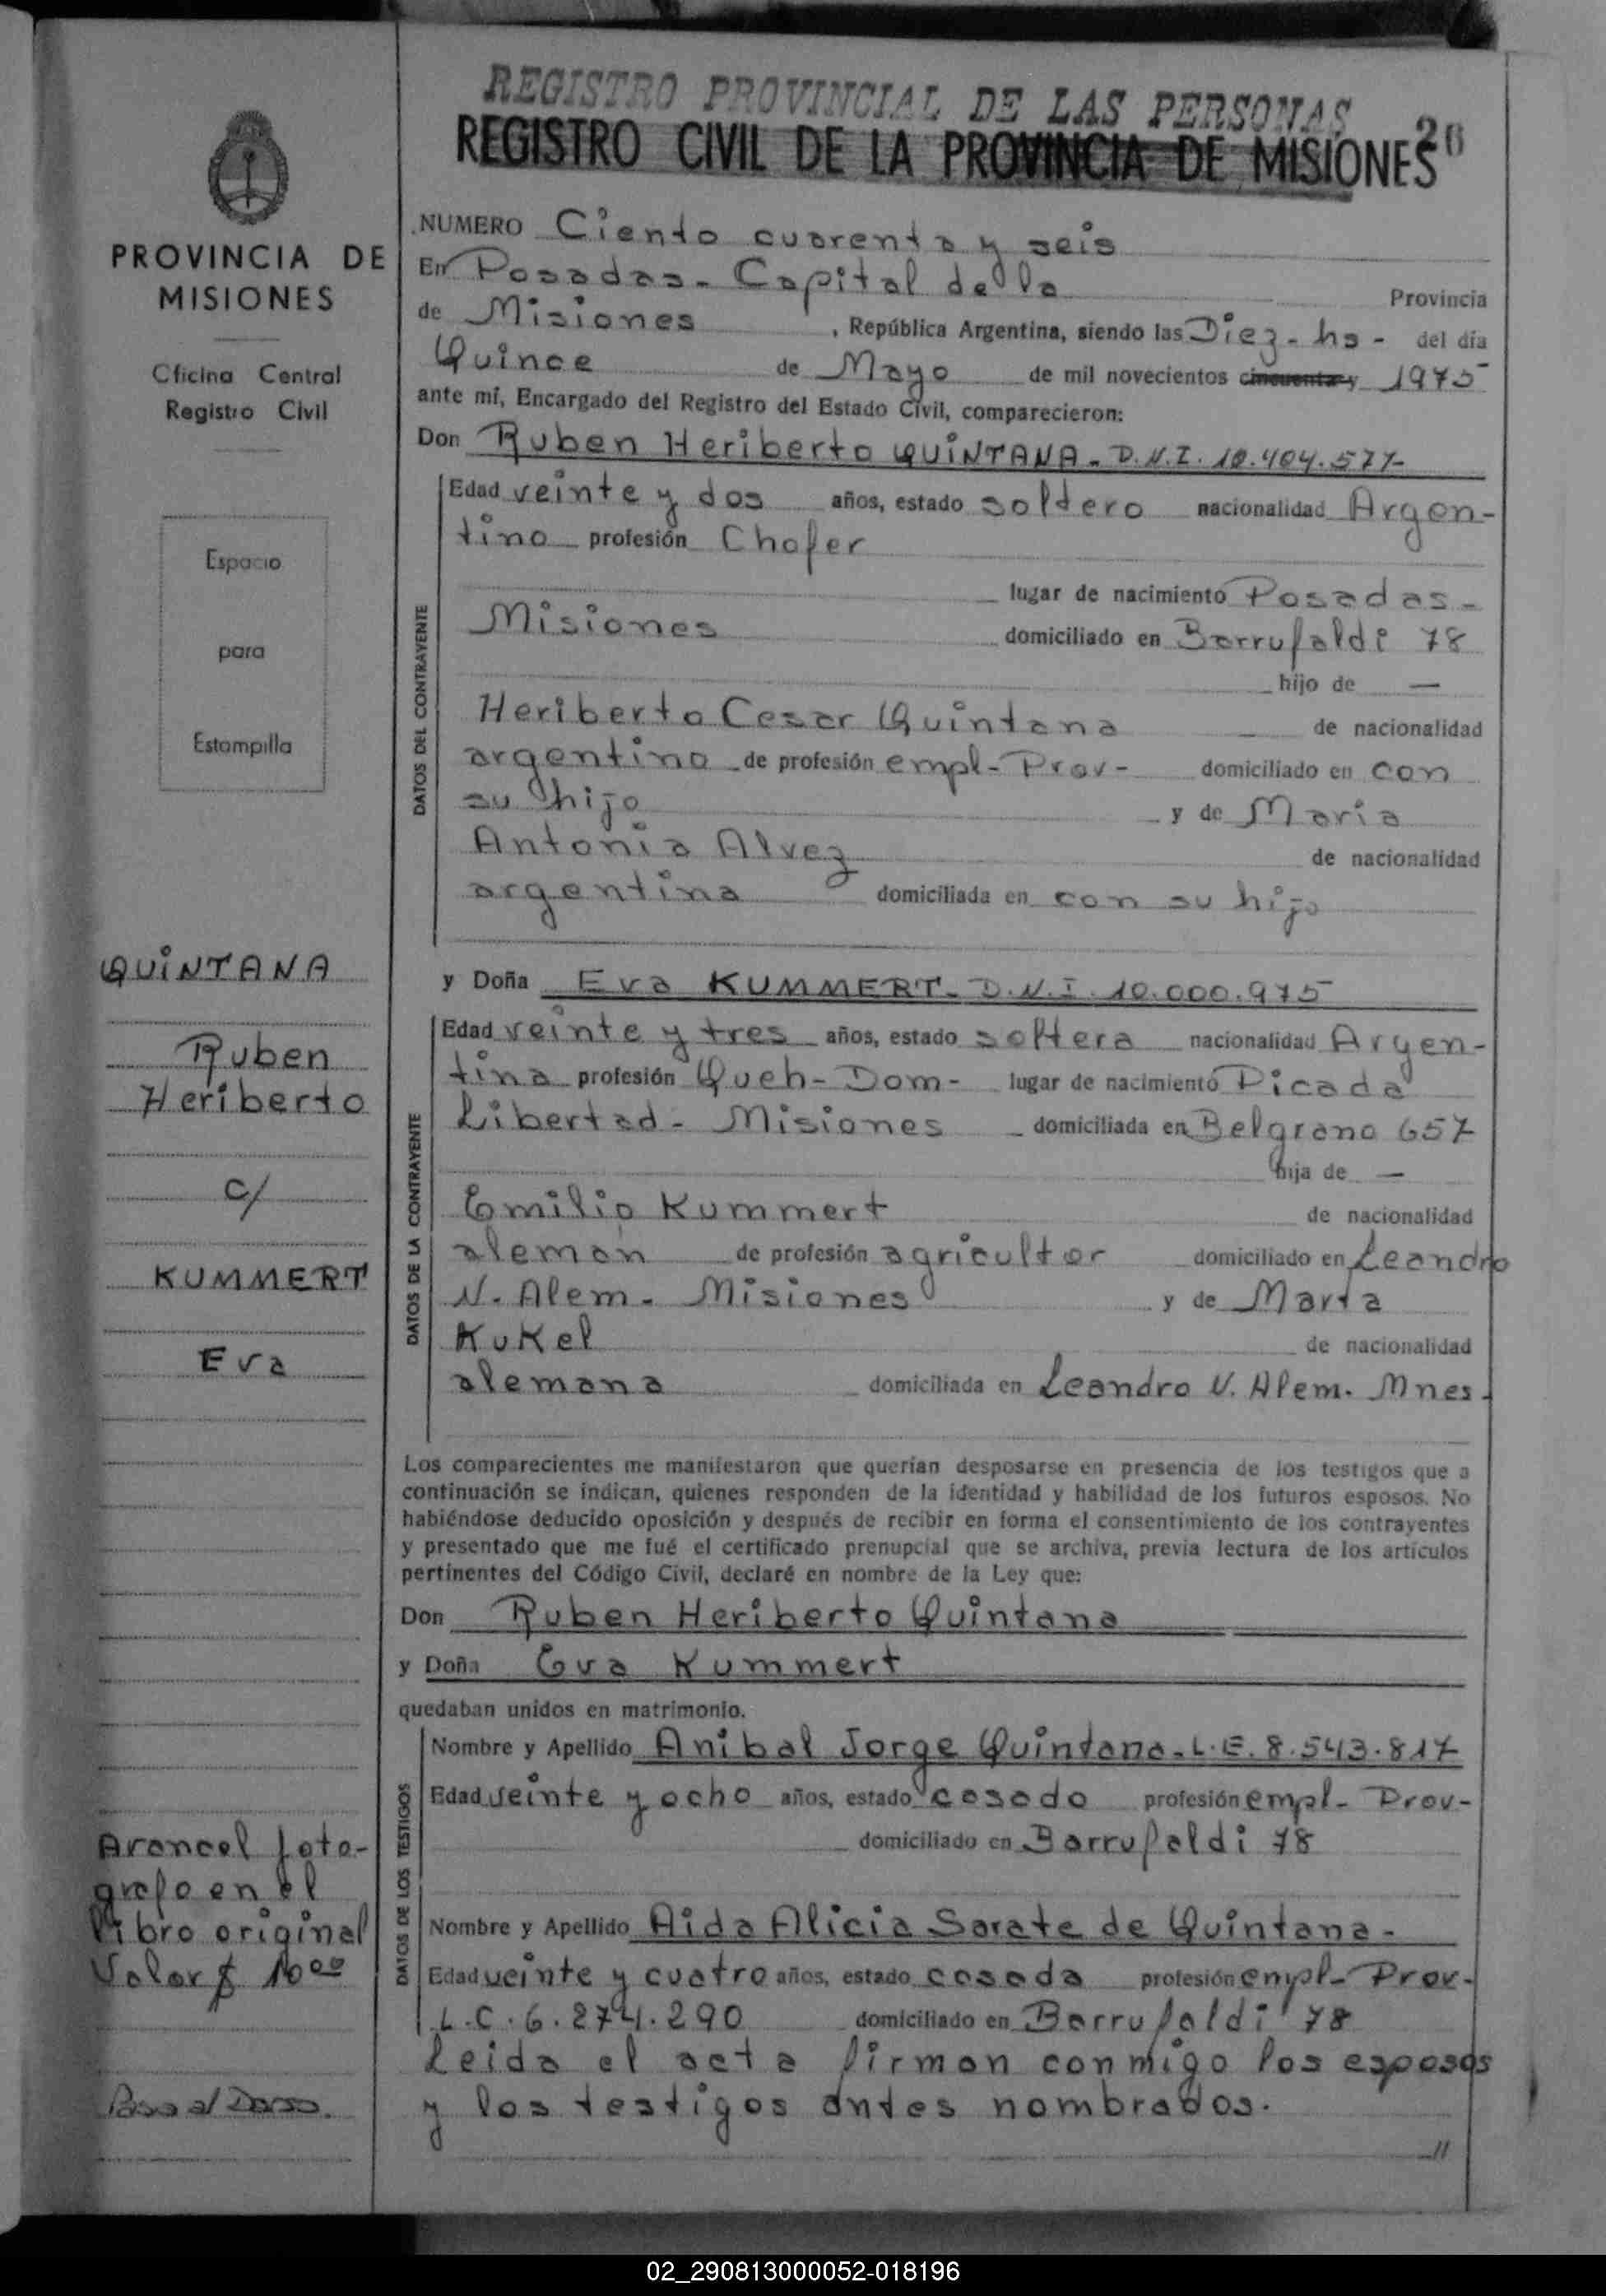 REGISTRO PROVINCIAL DE LAS PERSONAS
REGISTRO CIVIL DE LA PROVINCIA DE MISIONES
26
PROVINCIA DE
MISIONES
Oficina Central
Registro Civil
Espacio
para
Estampilla
QUINTANA
Ruben
Heriberto
c/
KUMMERT
Eva
Arancel foto-
grafo en el
libro original
Valor $ 10 00
Pasa al Dorso.
NUMERO Ciento cuarenta y seis
En Posadas - Capital de la Provincia
de Misiones, República Argentina, siendo las Diez - hs - del día
Quince de Mayo de mil novecientos cincuenta y 1975
ante mí, Encargado del Registro del Estado Civil, comparecieron:
Don Ruben Heriberto QUINTANA - D.N.I. 10.404.577-
DATOS DEL CONTRAYENTE
Edad veinte y dos años, estado soltero nacionalidad Argen-
tino profesión Chofer
lugar de nacimiento Posadas -
Misiones domiciliado en Barrufaldi 78
hijo de —
Heriberto Cesar Quintana de nacionalidad
argentino de profesión empl - Prov - domiciliado en con
su hijo y de Maria
Antonia Alvez de nacionalidad
argentina domiciliada en con su hijo
y Doña Eva KUMMERT - D.N.I. 10.000.975
DATOS DE LA CONTRAYENTE
Edad veinte y tres años, estado soltera nacionalidad Argen-
tina profesión Queh - Dom - lugar de nacimiento Picada
Libertad - Misiones domiciliada en Belgrano 657
hija de —
Emilio Kummert de nacionalidad
aleman de profesión agricultor domiciliado en Leandro
N. Alem - Misiones y de Marta
Kukel de nacionalidad
alemana domiciliada en Leandro N. Alem. Mnes.
Los comparecientes me manifestaron que querían desposarse en presencia de los testigos que a
continuación se indican, quienes responden de la identidad y habilidad de los futuros esposos. No
habiéndose deducido oposición y después de recibir en forma el consentimiento de los contrayentes
y presentado que me fué el certificado prenupcial que se archiva, previa lectura de los artículos
pertinentes del Código Civil, declaré en nombre de la Ley que:
Don Ruben Heriberto Quintana
y Doña Eva Kummert
quedaban unidos en matrimonio.
DATOS DE LOS TESTIGOS
Nombre y Apellido Anibal Jorge Quintana - L.E. 8.543.817
Edad veinte y ocho años, estado casado profesión empl - Prov -
domiciliado en Barrufaldi 78
Nombre y Apellido Aida Alicia Sarate de Quintana -
Edad veinte y cuatro años, estado casada profesión empl - Prov -
L.C. 6.274.290 domiciliado en Barrufaldi 78
Leida el acta firman conmigo los esposos
y los testigos antes nombrados.
//
02_290813000052-018196